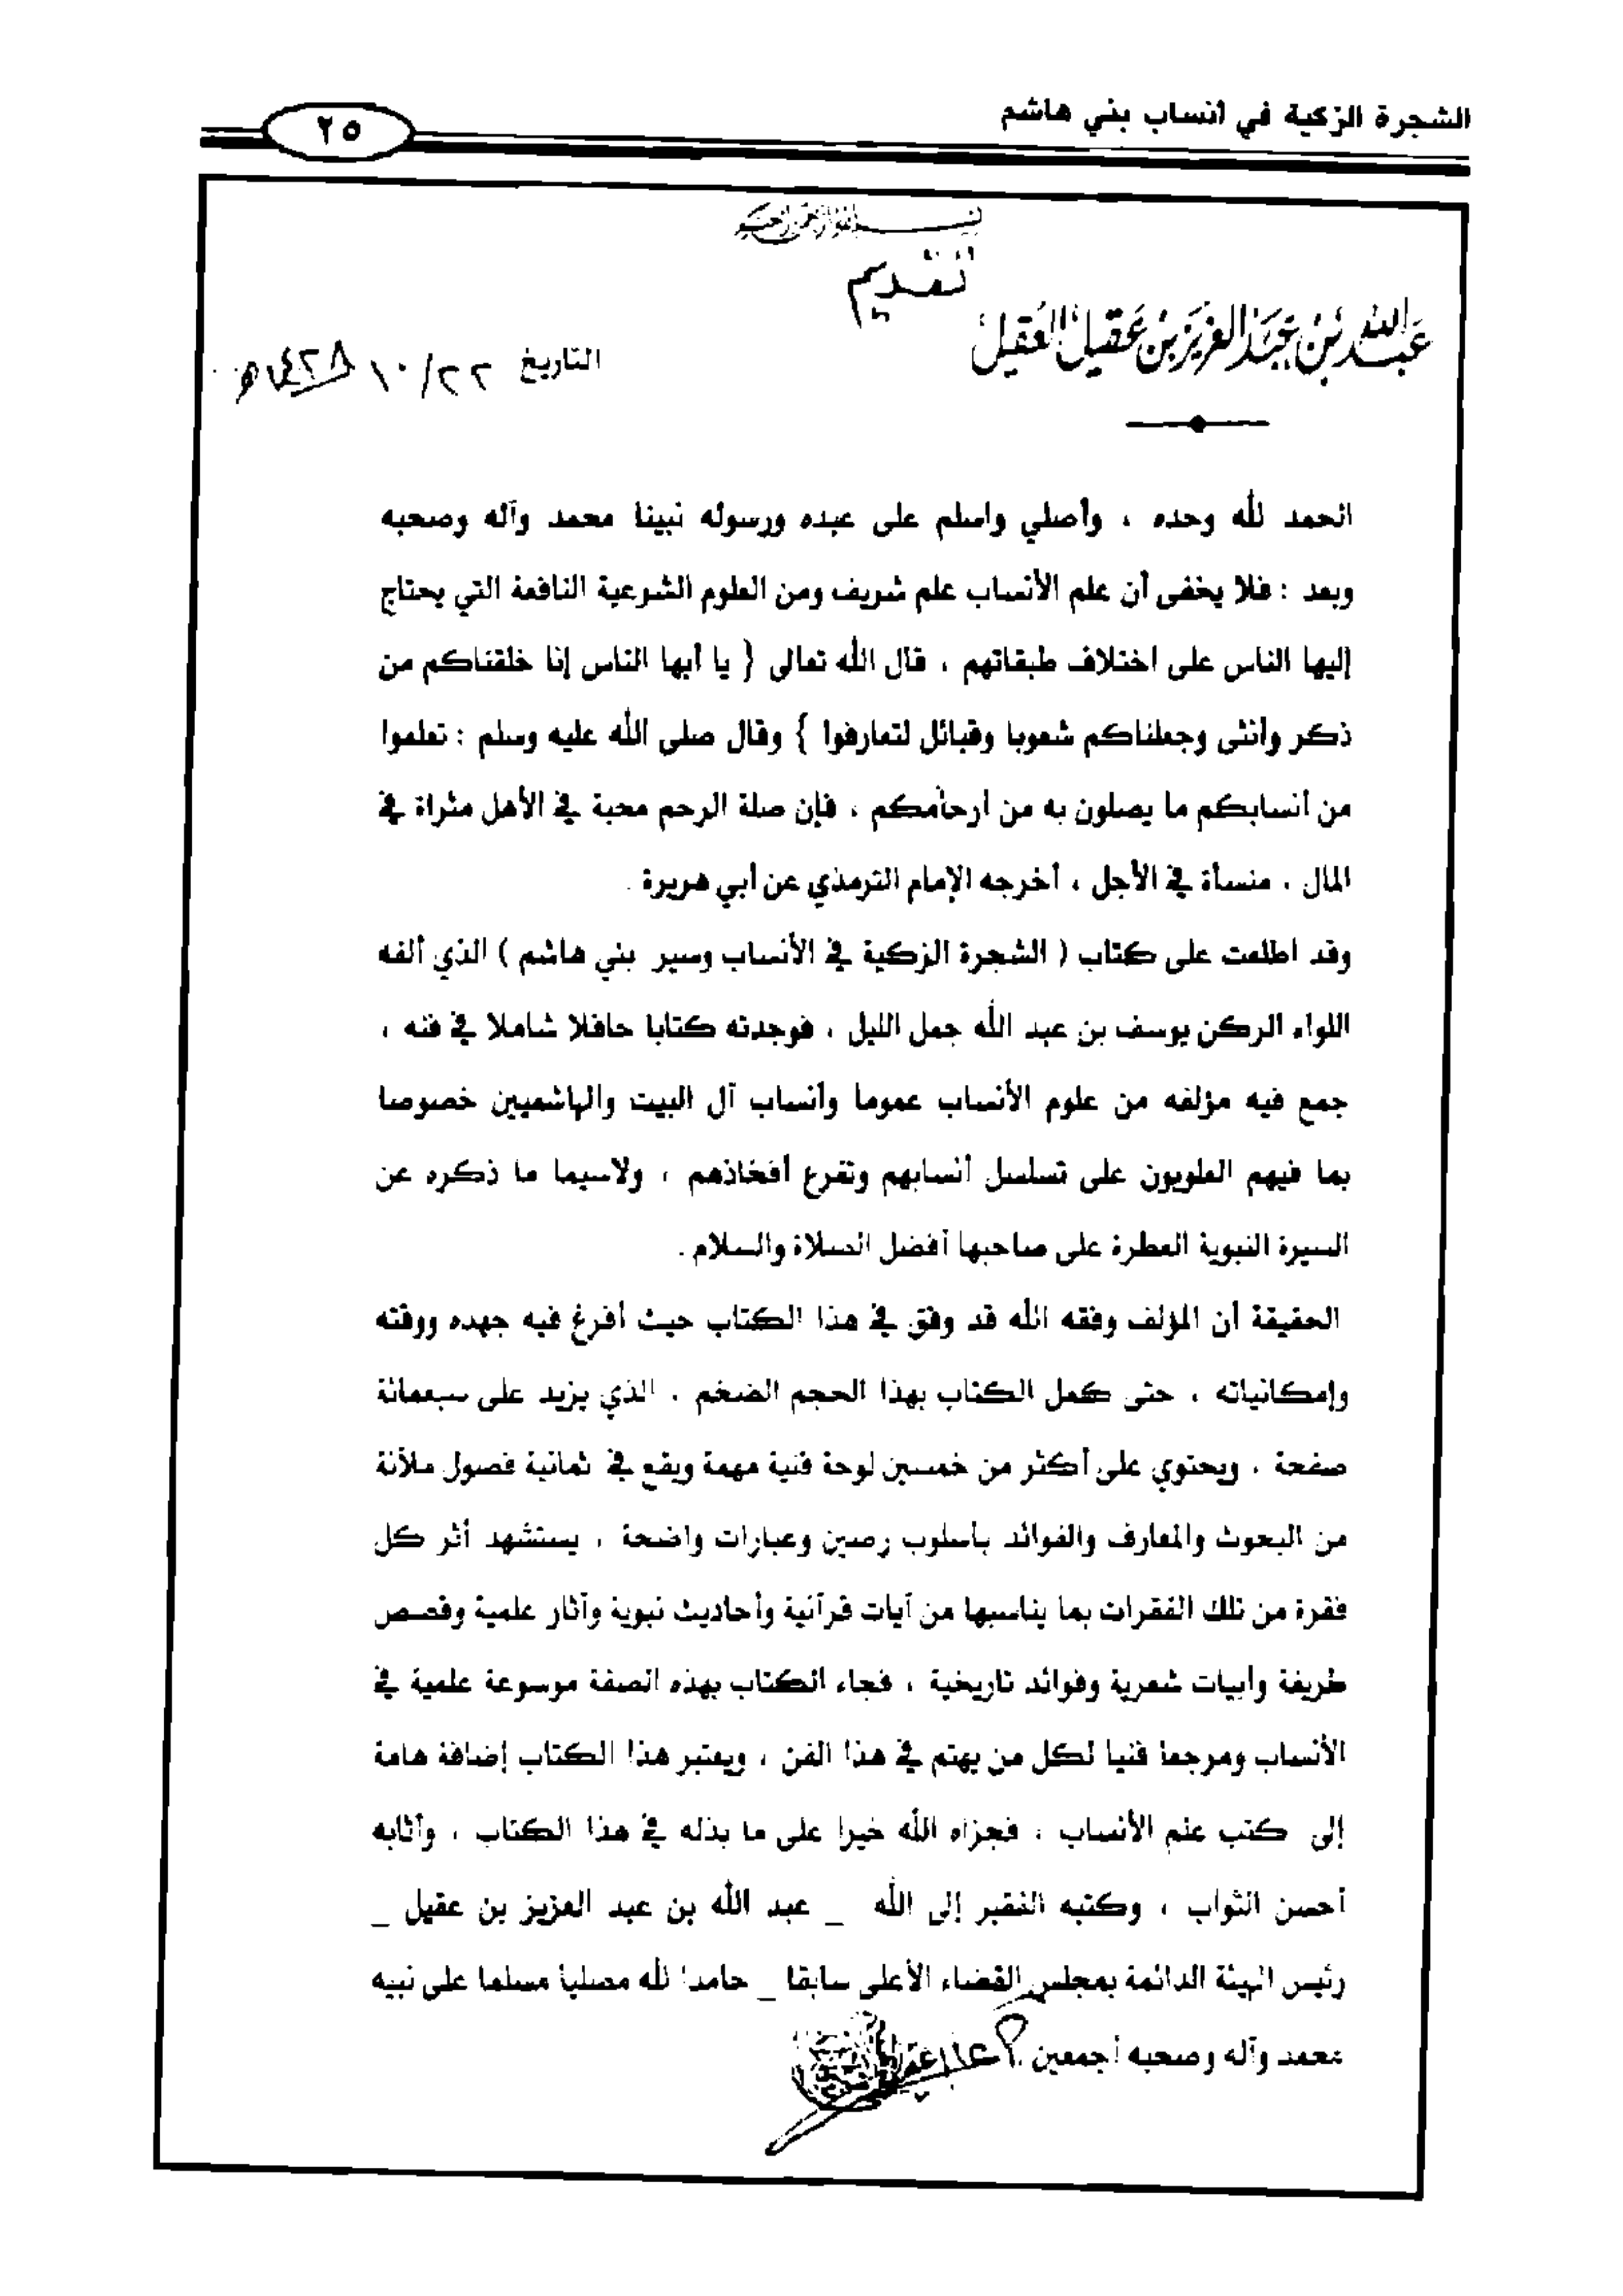 الشجرة الزكية في أنساب بني هاشم
٢٥
بسم الله الرحمن الرحيم
تقديم
عبد الله بن عبد العزيز بن عقيل العقيل
التاريخ ٢٢/١٠/١٤٢٨هـ
الحمد لله وحده ، وأصلي واسلم على عبده ورسوله نبينا محمد وآله وصحبه
وبعد : فلا يخفى أن علم الأنساب علم شريف ومن العلوم الشرعية النافعة التي يحتاج
إليها الناس على اختلاف طبقاتهم ، قال الله تعالى { يا أيها الناس إنا خلقناكم من
ذكر وأنثى وجعلناكم شعوبا وقبائل لتعارفوا } وقال صلى الله عليه وسلم : تعلموا
من أنسابكم ما يصلون به من أرحامكم ، فإن صلة الرحم محبة في الأهل مثراة في
المال ، منسأة في الأجل ، أخرجه الإمام الترمذي عن أبي هريرة .
وقد اطلعت على كتاب ( الشجرة الزكية في الأنساب وسير بني هاشم ) الذي ألفه
اللواء الركن يوسف بن عبد الله جمل الليل ، فوجدته كتابا حافلا شاملا في فنه ،
جمع فيه مؤلفه من علوم الأنساب عموما وأنساب آل البيت والهاشميين خصوصا
بما فيهم العلويون على تسلسل أنسابهم وتفرع أفخاذهم ، ولاسيما ما ذكره عن
السيرة النبوية العطرة على صاحبها أفضل الصلاة والسلام .
الحقيقة أن المؤلف وفقه الله قد وفق في هذا الكتاب حيث أفرغ فيه جهده ووقته
وإمكانياته ، حتى كمل الكتاب بهذا الحجم الضخم ، الذي يزيد على سبعمائة
صفحة ، ويحتوي على أكثر من خمسين لوحة فنية مهمة ويقع في ثمانية فصول ملآنة
من البحوث والمعارف والفوائد بأسلوب رصين وعبارات واضحة ، يستشهد أثر كل
فقرة من تلك الفقرات بما يناسبها من آيات قرآنية وأحاديث نبوية وآثار علمية وقصص
طريفة وأبيات شعرية وفوائد تاريخية ، فجاء الكتاب بهذه الصفة موسوعة علمية في
الأنساب ومرجعا فنيا لكل من يهتم في هذا الفن ، ويعتبر هذا الكتاب إضافة هامة
إلى كتب علم الأنساب ، فجزاه الله خيرا على ما بذله في هذا الكتاب ، وأثابه
أحسن الثواب ، وكتبه الفقير إلى الله _ عبد الله بن عبد العزيز بن عقيل _
رئيس الهيئة الدائمة بمجلس القضاء الأعلى سابقا _ حامدا لله مصليا مسلما على نبيه
محمد وآله وصحبه أجمعين .